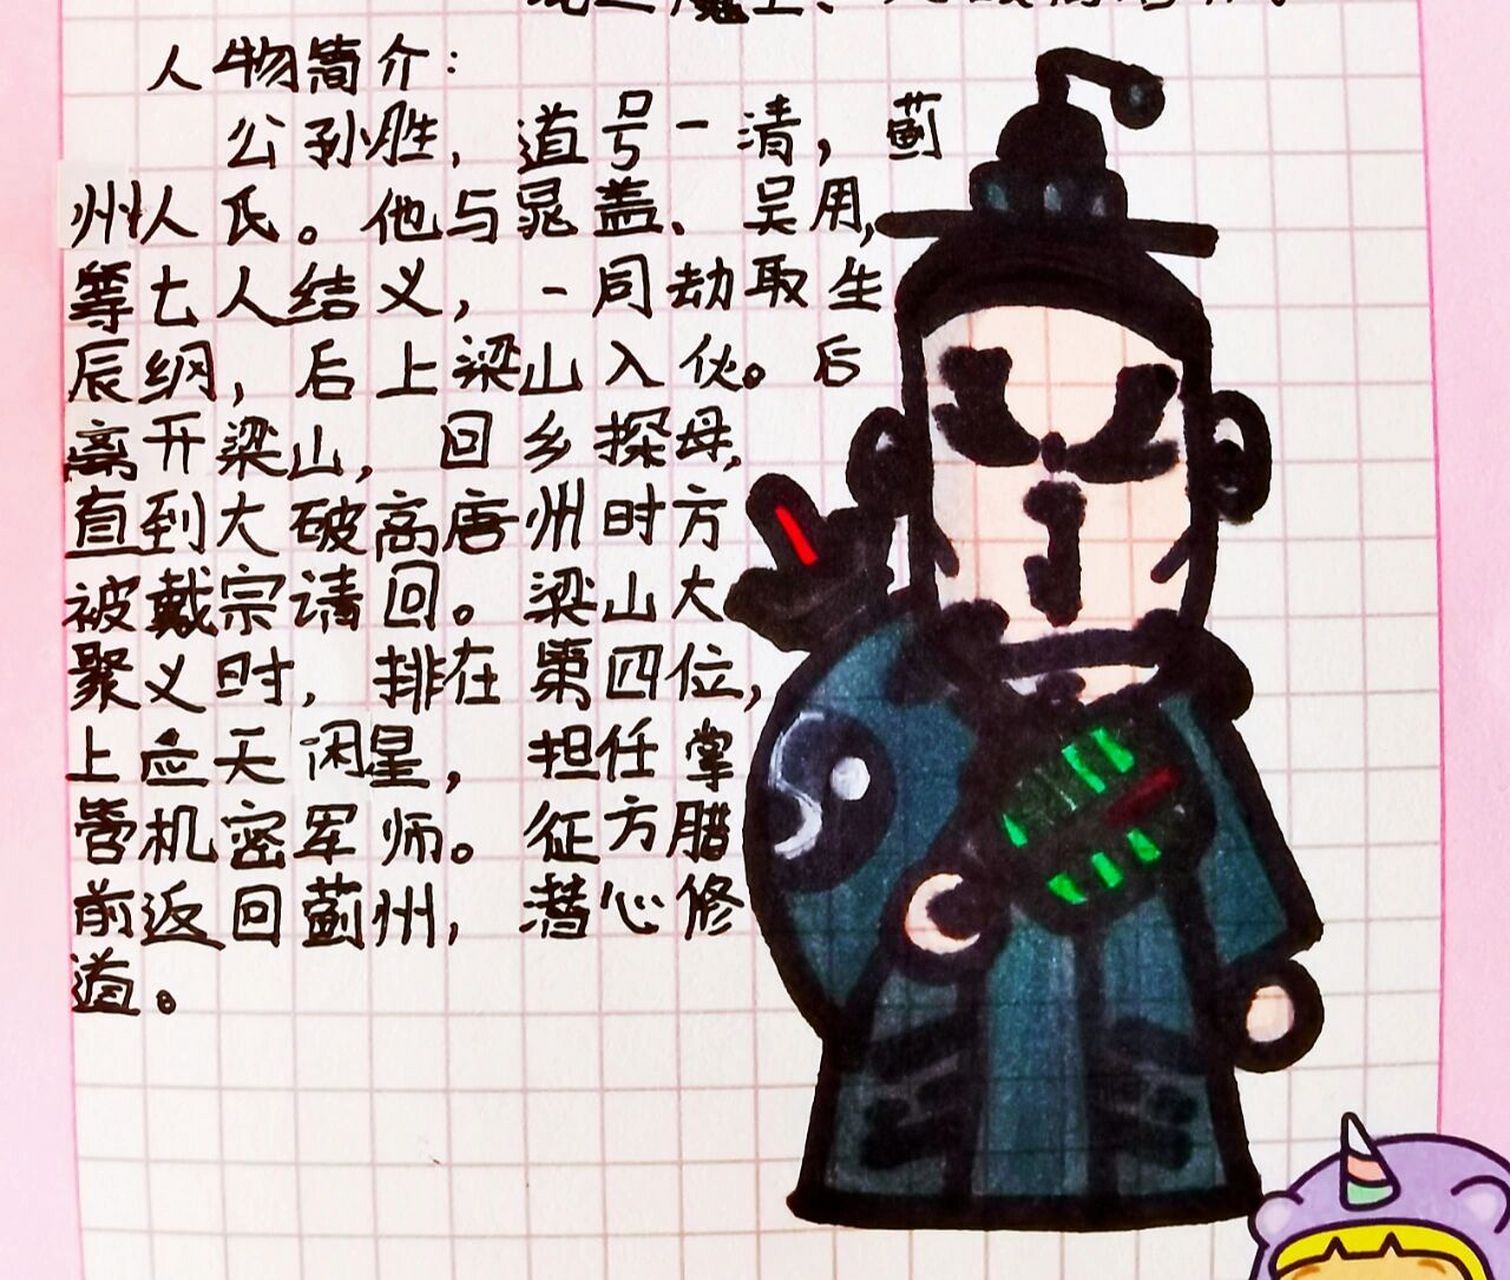 人物简介：
公孙胜，道号一清，蓟
州人氏。他与晁盖、吴用，
等七人结义，一同劫取生
辰纲，后上梁山入伙。后
离开梁山，回乡探母，
直到大破高唐州时方
被戴宗请回。梁山大
聚义时，排在第四位，
上应天闲星，担任掌
管机密军师。征方腊
前返回蓟州，潜心修
道。